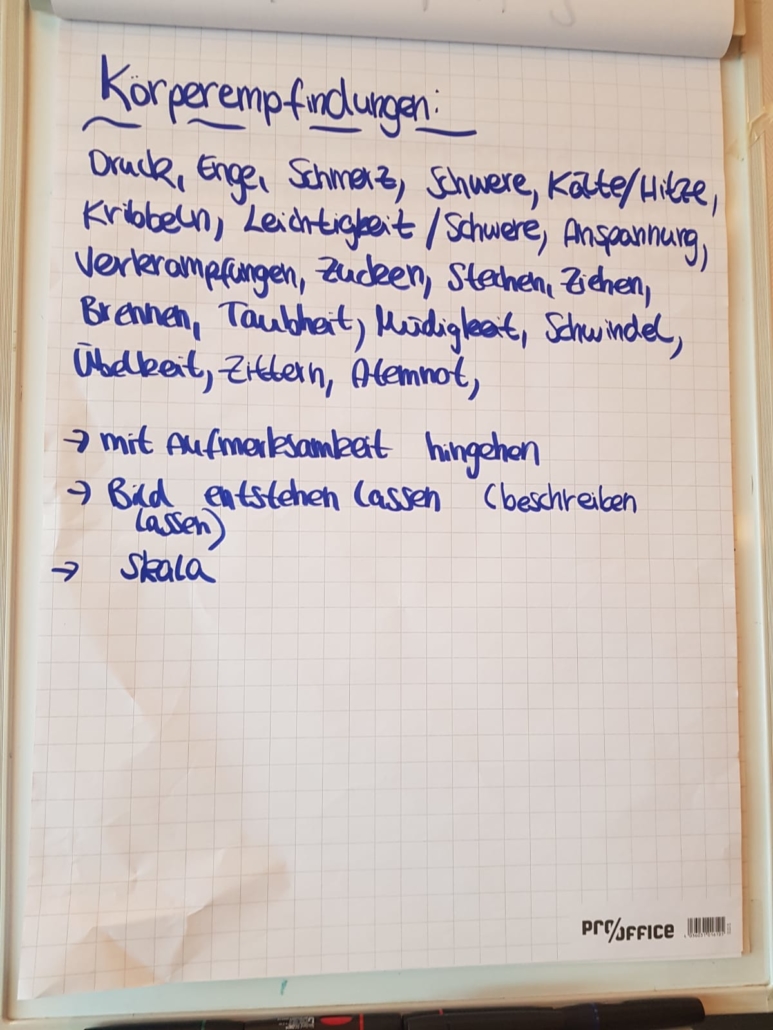 Körperempfindungen:
Druck, Enge, Schmerz, Schwere, Kälte/Hitze,
Kribbeln, Leichtigkeit / Schwere, Anspannung,
Verkrampfungen, Zucken, Stechen, Ziehen,
Brennen, Taubheit, Müdigkeit, Schwindel,
Übelkeit, Zittern, Atemnot,
→ mit Aufmerksamkeit hingehen
→ Bild entstehen lassen (beschreiben
lassen)
→ Skala
PRO/OFFICE